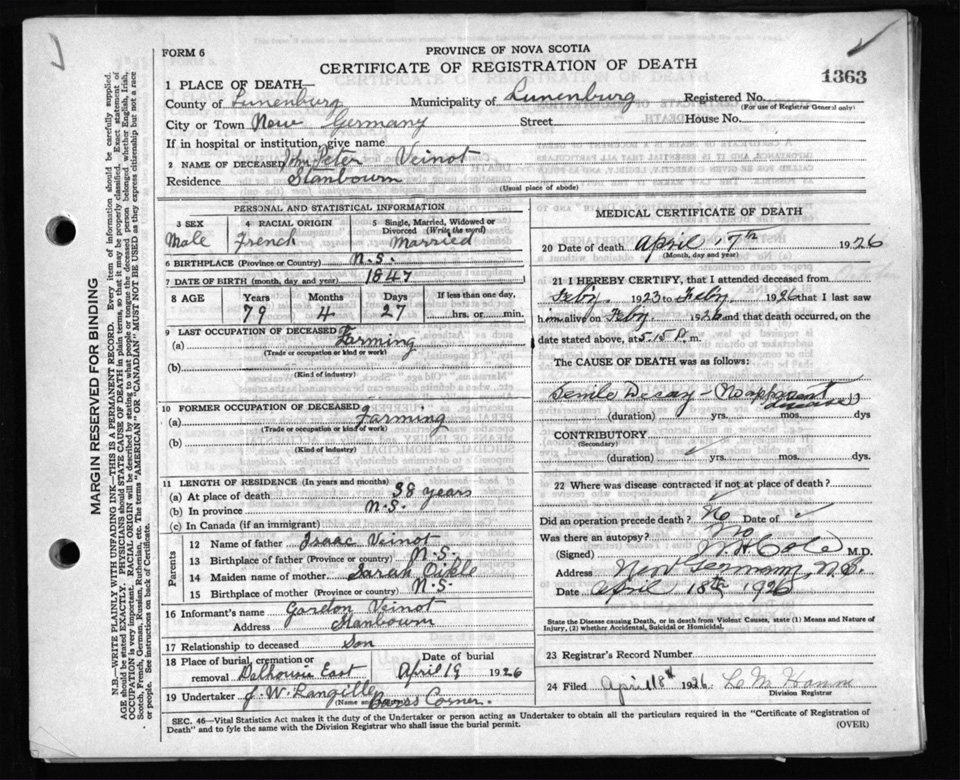 FORM 6
PROVINCE OF NOVA SCOTIA
CERTIFICATE OF REGISTRATION OF DEATH
1363
1 PLACE OF DEATH—
County of Lunenburg Municipality of Lunenburg Registered No.
(For use of Registrar General only)
City or Town New Germany Street House No.
If in hospital or institution, give name
2 NAME OF DECEASED John Peter Veinot
Residence Stanbourn
(Usual place of abode)
PERSONAL AND STATISTICAL INFORMATION
3 SEX 4 RACIAL ORIGIN 5 Single, Married, Widowed or Divorced (Write the word)
Male French Married
6 BIRTHPLACE (Province or Country) N.S.
7 DATE OF BIRTH (month, day and year) 1847
8 AGE Years Months Days If less than one day,
79 4 27 hrs. or min.
9 LAST OCCUPATION OF DECEASED
(a) Farming
(Trade or occupation or kind or work)
(b)
(Kind of industry)
10 FORMER OCCUPATION OF DECEASED
(a) Farming
(Trade or occupation or kind of work)
(b)
(Kind of industry)
11 LENGTH OF RESIDENCE (In years and months)
(a) At place of death 38 years
(b) In province N.S.
(c) In Canada (if an immigrant)
Parents
12 Name of father Isaac Veinot
13 Birthplace of father (Province or country) N.S.
14 Maiden name of mother Sarah Oikle
15 Birthplace of mother (Province or country) N.S.
16 Informant's name Gordon Veinot
Address Stanbourn
17 Relationship to deceased Son
18 Place of burial, cremation or removal Dalhousie East Date of burial April 19 1926
19 Undertaker J. W. Langille
Corner.
MEDICAL CERTIFICATE OF DEATH
20 Date of death April 17th 1926
(Month, day and year)
21 I HEREBY CERTIFY, that I attended deceased from
Feby. 1923 to Feby. 1926 that I last saw
him alive on Feby 1926 and that death occurred, on the
date stated above, at 5.15 P. m.
The CAUSE OF DEATH was as follows:
Senile Decay - No apparent disease
(duration) yrs. mos. dys
CONTRIBUTORY
(Secondary)
(duration) yrs. mos. dys.
22 Where was disease contracted if not at place of death?
Did an operation precede death? No Date of
Was there an autopsy? No
(Signed) W. H. Cole M.D.
Address New Germany, N.S.
Date April 18th 1926
State the Disease causing Death, or in death from Violent Causes, state (1) Means and Nature
of Injury, (2) whether Accidental, Suicidal or Homicidal.
23 Registrar's Record Number
24 Filed April 18th 1926
Division Registrar
SEC. 46—Vital Statistics Act makes it the duty of the Undertaker or person acting as Undertaker to obtain all the particulars required in the "Certificate of Registration of
Death" and to fyle the same with the Division Registrar who shall issue the burial permit. (OVER)
MARGIN RESERVED FOR BINDING
N.B.—WRITE PLAINLY WITH UNFADING INK—THIS IS A PERMANENT RECORD. Every item of information should be carefully supplied.
AGE should be stated EXACTLY. PHYSICIANS should STATE CAUSE OF DEATH in plain terms, so that it may be properly classified. Exact statement of
OCCUPATION is very important. RACIAL ORIGIN will be described by stating to what people or tongue the deceased person belonged whether English, Irish,
Scotch, French, German, Russian, Ruthenian, etc. The terms "AMERICAN" OR "CANADIAN" MUST NOT BE USED as they express citizenship but not a race
or people. See instructions on back of Certificate.